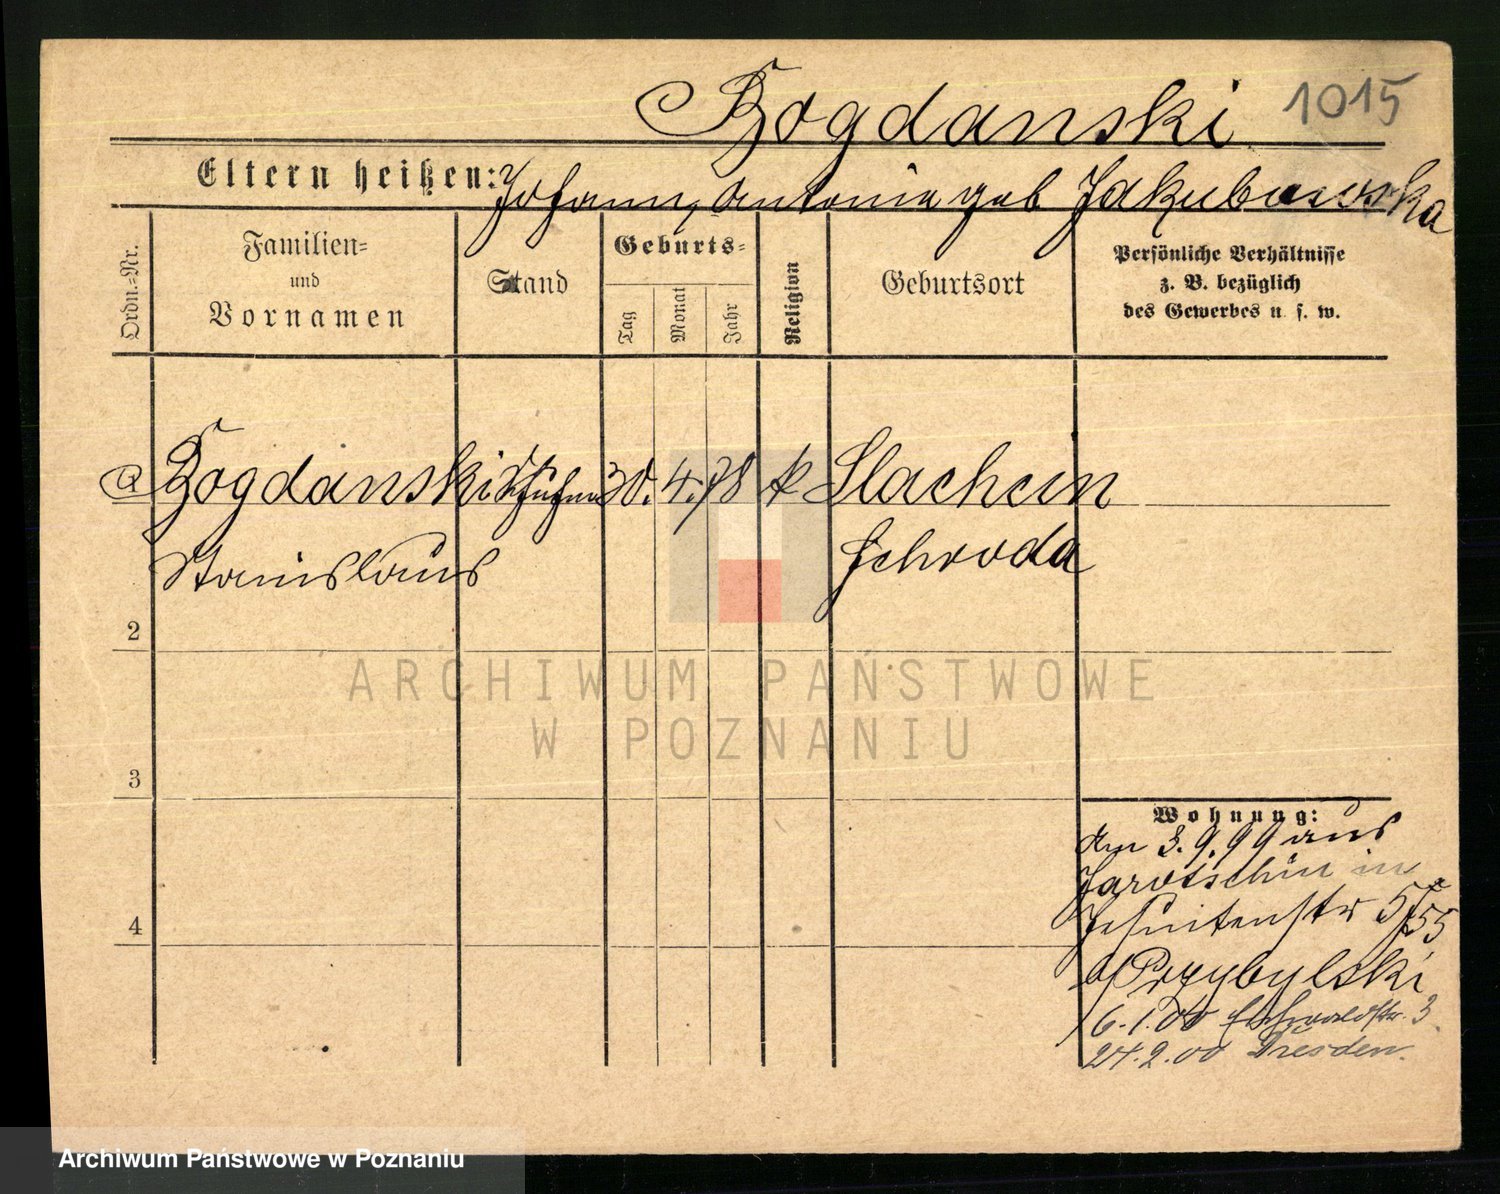 Bogdanski 1015
Eltern heißen: Johann, Antonie geb Jakubowska
Ordn.-Nr.
Familien-
und
Vornamen
Stand
Geburts-
Tag
Monat
Jahr
Religion
Geburtsort
Persönliche Verhältnisse
z. B. bezüglich
des Gewerbes u. s. w.
Bogdanski 30. 4. 78 k Slachcin
Stanislaus Schroda
2
ARCHIWUM PAŃSTWOWE
W POZNANIU
3
Wohnung:
den 3.9.99 aus
Jarotschin in
Jesuitenstr 5
b/Przybylski
6.1.00 3
24.2.00 Dresden.
4
Archiwum Państwowe w Poznaniu